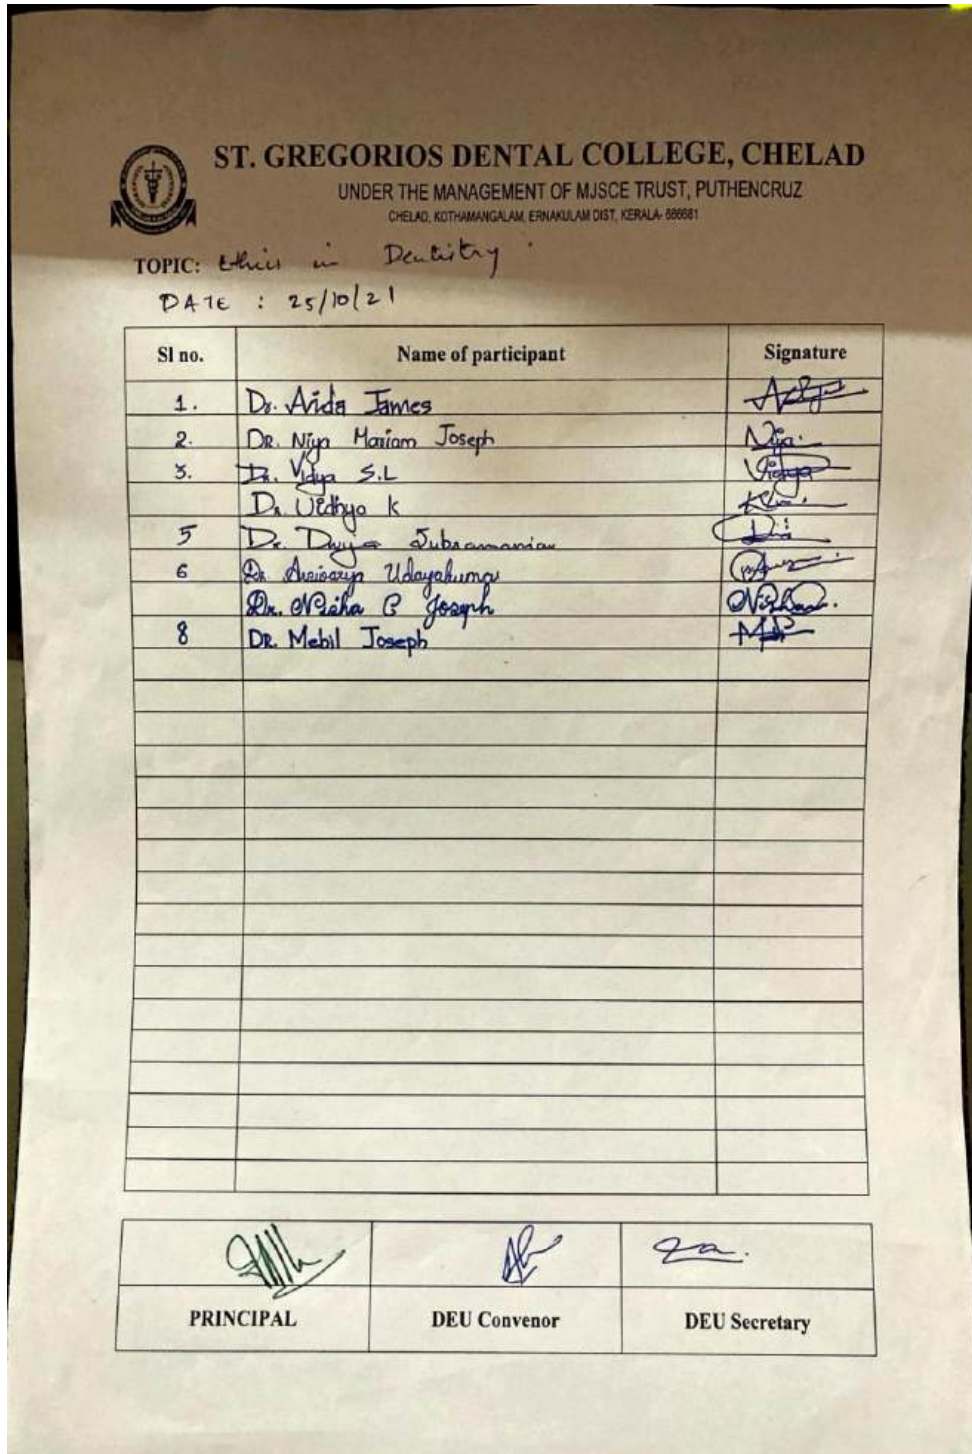 ST. GREGORIOS DENTAL COLLEGE, CHELAD
UNDER THE MANAGEMENT OF MJSCE TRUST, PUTHENCRUZ
CHELAD, KOTHAMANGALAM, ERNAKULAM DIST, KERALA- 686681
TOPIC: Ethics in Dentistry
DATE : 25/10/21
Sl no. Name of participant Signature
1. Dr. Aida James
2. DR. Niya Mariam Joseph Niya.
3. Dr. Vidya S.L Vidya
Dr. Vidhya K
5 Dr. Dwija Subramanian
6 Dr. Aiswarya Udayakumar
Dr. Nisha C Joseph Nisha
8 DR. Mebil Joseph
PRINCIPAL DEU Convenor DEU Secretary